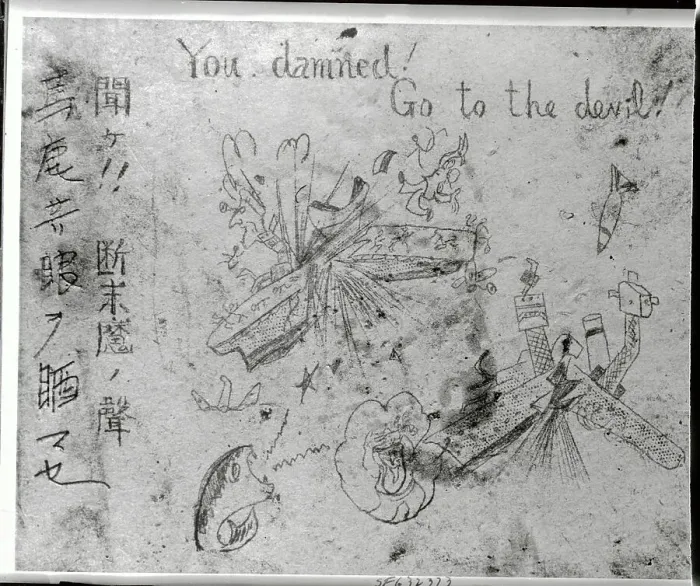 You damned!
Go to the devil!
聞ケ!! 断末魔ノ聲
馬鹿者眼ヲマセ